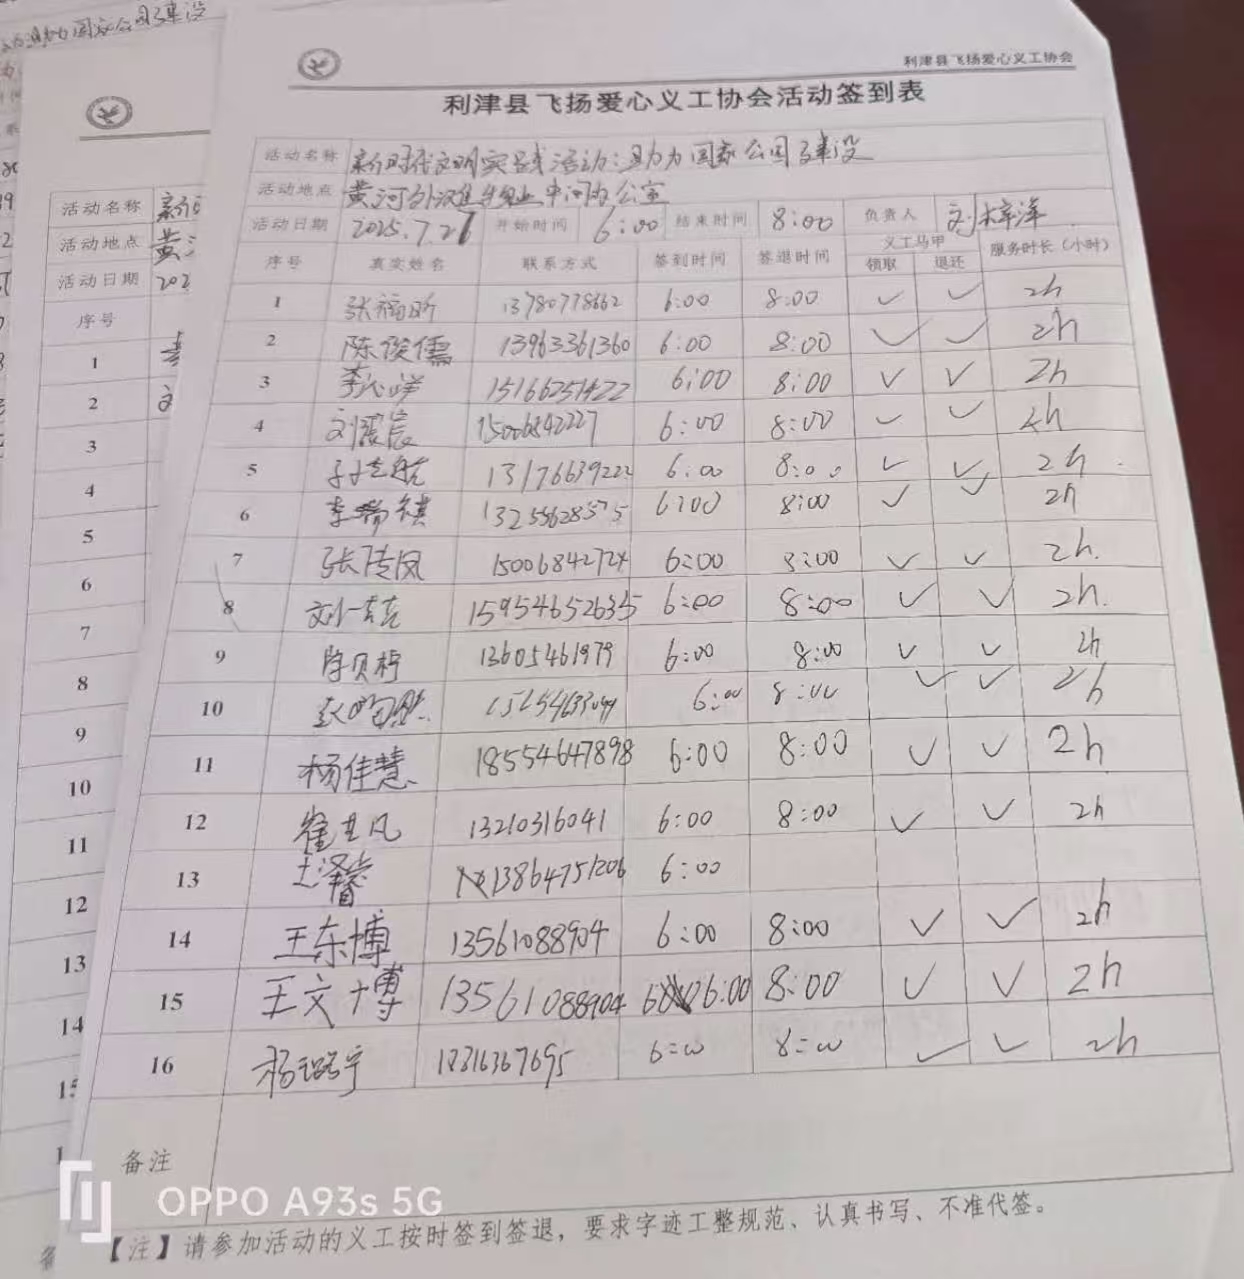 利津县飞扬爱心义工协会
利津县飞扬爱心义工协会活动签到表
活动名称 新时代文明实践活动:助力国家公园建设
活动地点 黄河外滩 中间办公室
活动日期 2025.7.27 开始时间 6:00 结束时间 8:00 负责人 刘梓洋
序号 真实姓名 联系方式 签到时间 签退时间 义工马甲 领取 退还 服务时长(小时)
1 张 13780778662 6:00 8:00 ✓ ✓ 2h
2 陈俊儒 13963361360 6:00 8:00 ✓ ✓ 2h
3 李 15166251422 6:00 8:00 ✓ ✓ 2h
4 刘宸 15006842227 6:00 8:00 ✓ ✓ 2h
5 航 13176639222 6:00 8:00 ✓ ✓ 2h
6 李瑞祺 13255628575 6:00 8:00 ✓ ✓ 2h
7 张凤 15006842724 6:00 8:00 ✓ ✓ 2h.
8 刘 159546526355 6:00 8:00 ✓ ✓ 2h.
9 陈贝 13605461979 6:00 8:00 ✓ ✓ 2h
10 赵 6:00 8:00 ✓ ✓ 2h
11 杨佳慧 18554647898 6:00 8:00 ✓ ✓ 2h
12 崔凡 13210316041 6:00 8:00 ✓ ✓ 2h
13 13864751206 6:00
14 王东博 13561088904 6:00 8:00 ✓ ✓ 2h
15 王文博 13561088904 6:00 8:00 ✓ ✓ 2h
16 杨宇 6:00 8:00 ✓ ✓ 2h
备注
【注】请参加活动的义工按时签到签退,要求字迹工整规范、认真书写、不准代签。
助力国家公园建设
活动名称 新
活动地点 黄
活动日期 202
序号
1
2
3
4
5
6
7
8
9
10
11
12
13
14
15
OPPO A93s 5G